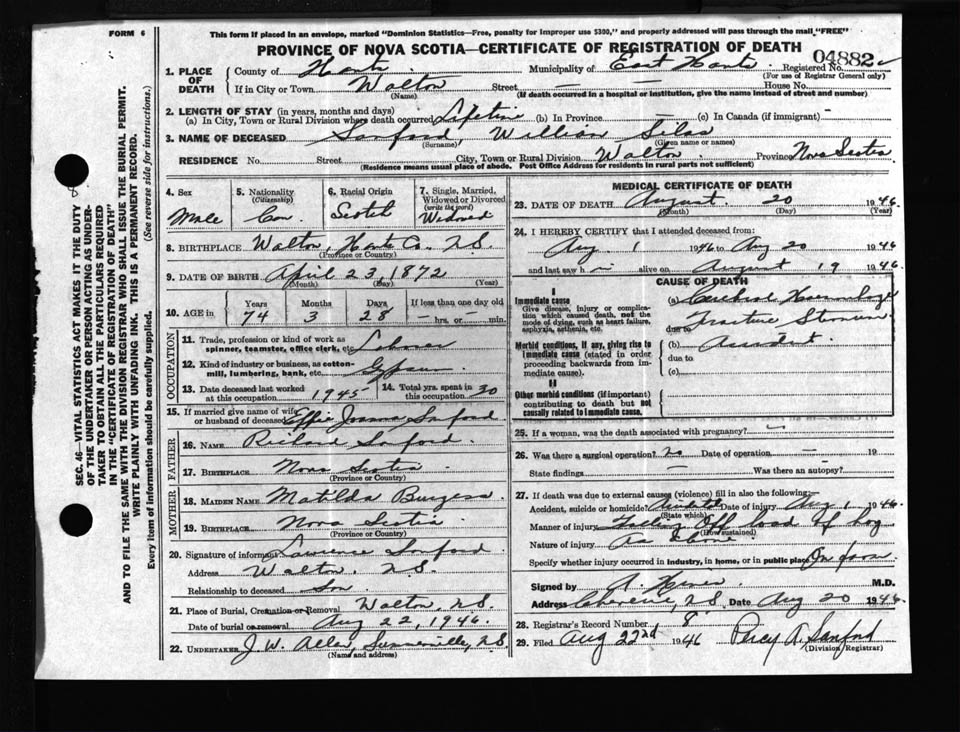 FORM 6
This form if placed in an envelope, marked "Dominion Statistics—Free, penalty for improper use $300," and properly addressed will pass through the mail "FREE"
PROVINCE OF NOVA SCOTIA—CERTIFICATE OF REGISTRATION OF DEATH
04882
1. PLACE OF DEATH
County of Hants Municipality of East Hants Registered No.
(For use of Registrar General only)
If in City or Town Walton Street — House No.
(Name) (If death occurred in a hospital or institution, give the name instead of street and number)
2. LENGTH OF STAY (in years, months and days)
(a) In City, Town or Rural Division where death occurred Lifetime (b) In Province (c) In Canada (if immigrant) —
3. NAME OF DECEASED Sanford William Silas
(Surname) (Given name or names)
RESIDENCE No. Street City, Town or Rural Division Walton Province Nova Scotia
(Residence means usual place of abode. Post Office Address for residents in rural parts not sufficient)
4. Sex Male
5. Nationality (Citizenship) Can
6. Racial Origin Scotch
7. Single, Married, Widowed or Divorced (write the word) Widowed
8. BIRTHPLACE Walton, Hants Co. N.S.
(Province or Country)
9. DATE OF BIRTH April 23, 1872
(Month) (Day) (Year)
10. AGE in Years 74 Months 3 Days 28 If less than one day old — hrs. or — min.
OCCUPATION
11. Trade, profession or kind of work as spinner, teamster, office clerk, etc. Laborer
12. Kind of industry or business, as cotton-mill, lumbering, bank, etc. Gypsum
13. Date deceased last worked at this occupation 1945
14. Total yrs. spent in this occupation 30
15. If married give name of wife or husband of deceased Effie Joanna Sanford
FATHER
16. NAME Richard Sanford
17. BIRTHPLACE Nova Scotia
(Province or Country)
MOTHER
18. MAIDEN NAME Matilda Burgess
19. BIRTHPLACE Nova Scotia
(Province or Country)
20. Signature of informant Lawrence Sanford
Address Walton, N.S.
Relationship to deceased Son
21. Place of Burial, Cremation or Removal Walton, N.S.
Date of burial or removal Aug 22, 1946.
22. UNDERTAKER J. W. Allen, Summerville, N.S.
(Name and address)
MEDICAL CERTIFICATE OF DEATH
23. DATE OF DEATH August 20 1946
(Month) (Day) (Year)
24. I HEREBY CERTIFY that I attended deceased from:
Aug 1 1946 to Aug 20 1946
and last saw h im alive on August 19 1946.
CAUSE OF DEATH
I
Immediate cause
Give disease, injury or complication which caused death, not the mode of dying, such as heart failure, asphyxia, asthenia, etc.
(a) Cerebral Hemorrhage
due to Fracture Sternum
Morbid conditions, if any, giving rise to immediate cause (stated in order proceeding backwards from immediate cause).
(b) Accident
due to
(c)
II
Other morbid conditions (if important) contributing to death but not causally related to immediate cause.
25. If a woman, was the death associated with pregnancy? —
26. Was there a surgical operation? no Date of operation — 19
State findings — Was there an autopsy?
27. If death was due to external causes (violence) fill in also the following:—
Accident, suicide or homicide? Date of injury Aug 1 1946
(State which)
Manner of injury Falling Off load of hay
(How sustained)
Nature of injury As Above
Specify whether injury occurred in industry, in home, or in public place On farm
Signed by A. M.D.
Address N.S. Date Aug 20 1946
28. Registrar's Record Number 8
29. Filed Aug 22nd 1946 Percy A. Sanford
(Division Registrar)
SEC. 46—VITAL STATISTICS ACT MAKES IT THE DUTY OF THE UNDERTAKER OR PERSON ACTING AS UNDERTAKER TO OBTAIN ALL THE PARTICULARS REQUIRED IN THE "CERTIFICATE OF REGISTRATION OF DEATH" AND TO FILE THE SAME WITH THE DIVISION REGISTRAR WHO SHALL ISSUE THE BURIAL PERMIT.
WRITE PLAINLY WITH UNFADING INK. THIS IS A PERMANENT RECORD.
Every item of information should be carefully supplied. (See reverse side for instructions.)